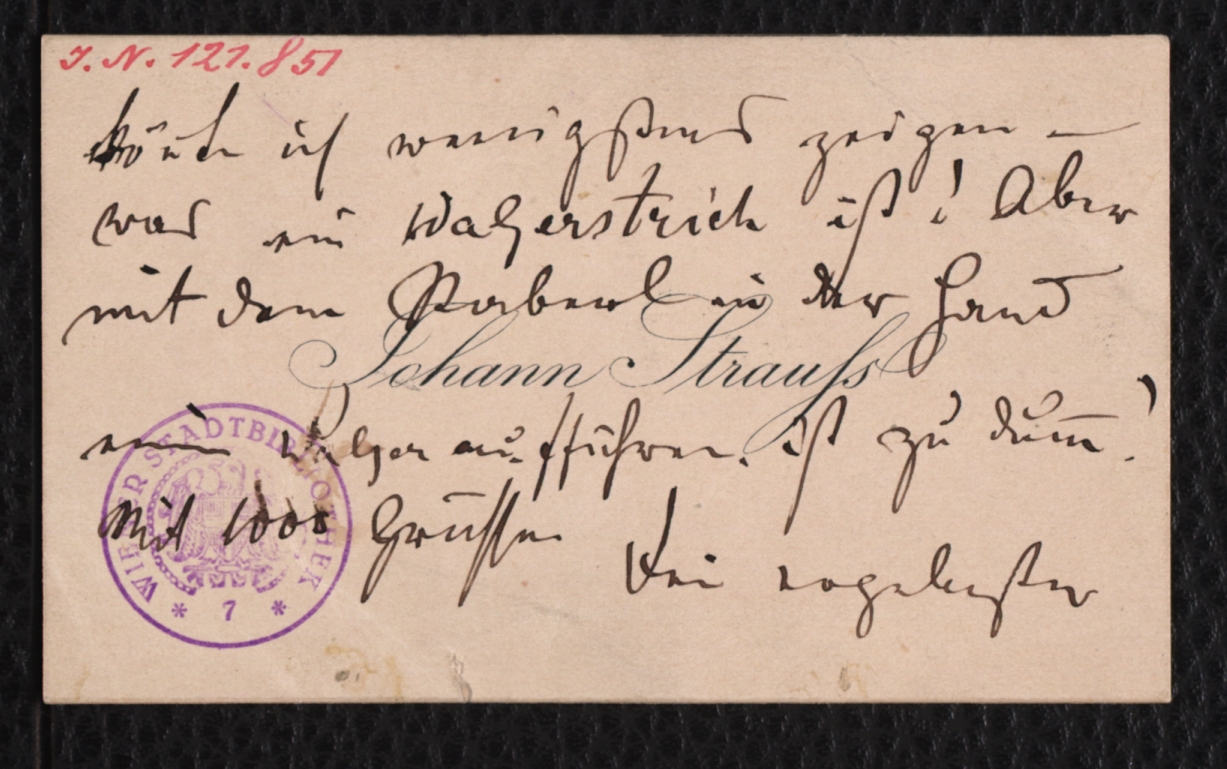 J. N. 121.851
könte ich wenigstens zeigen —
was ein Walzerstrich ist! Aber
mit dem Staberl in der Hand
Johann Strauss
ein Walzer aufführen ist zu dum̄!
Mit 1000 Grüssen
Dein ergebenster
WIENER STADTBIBLIOTHEK
* 7 *